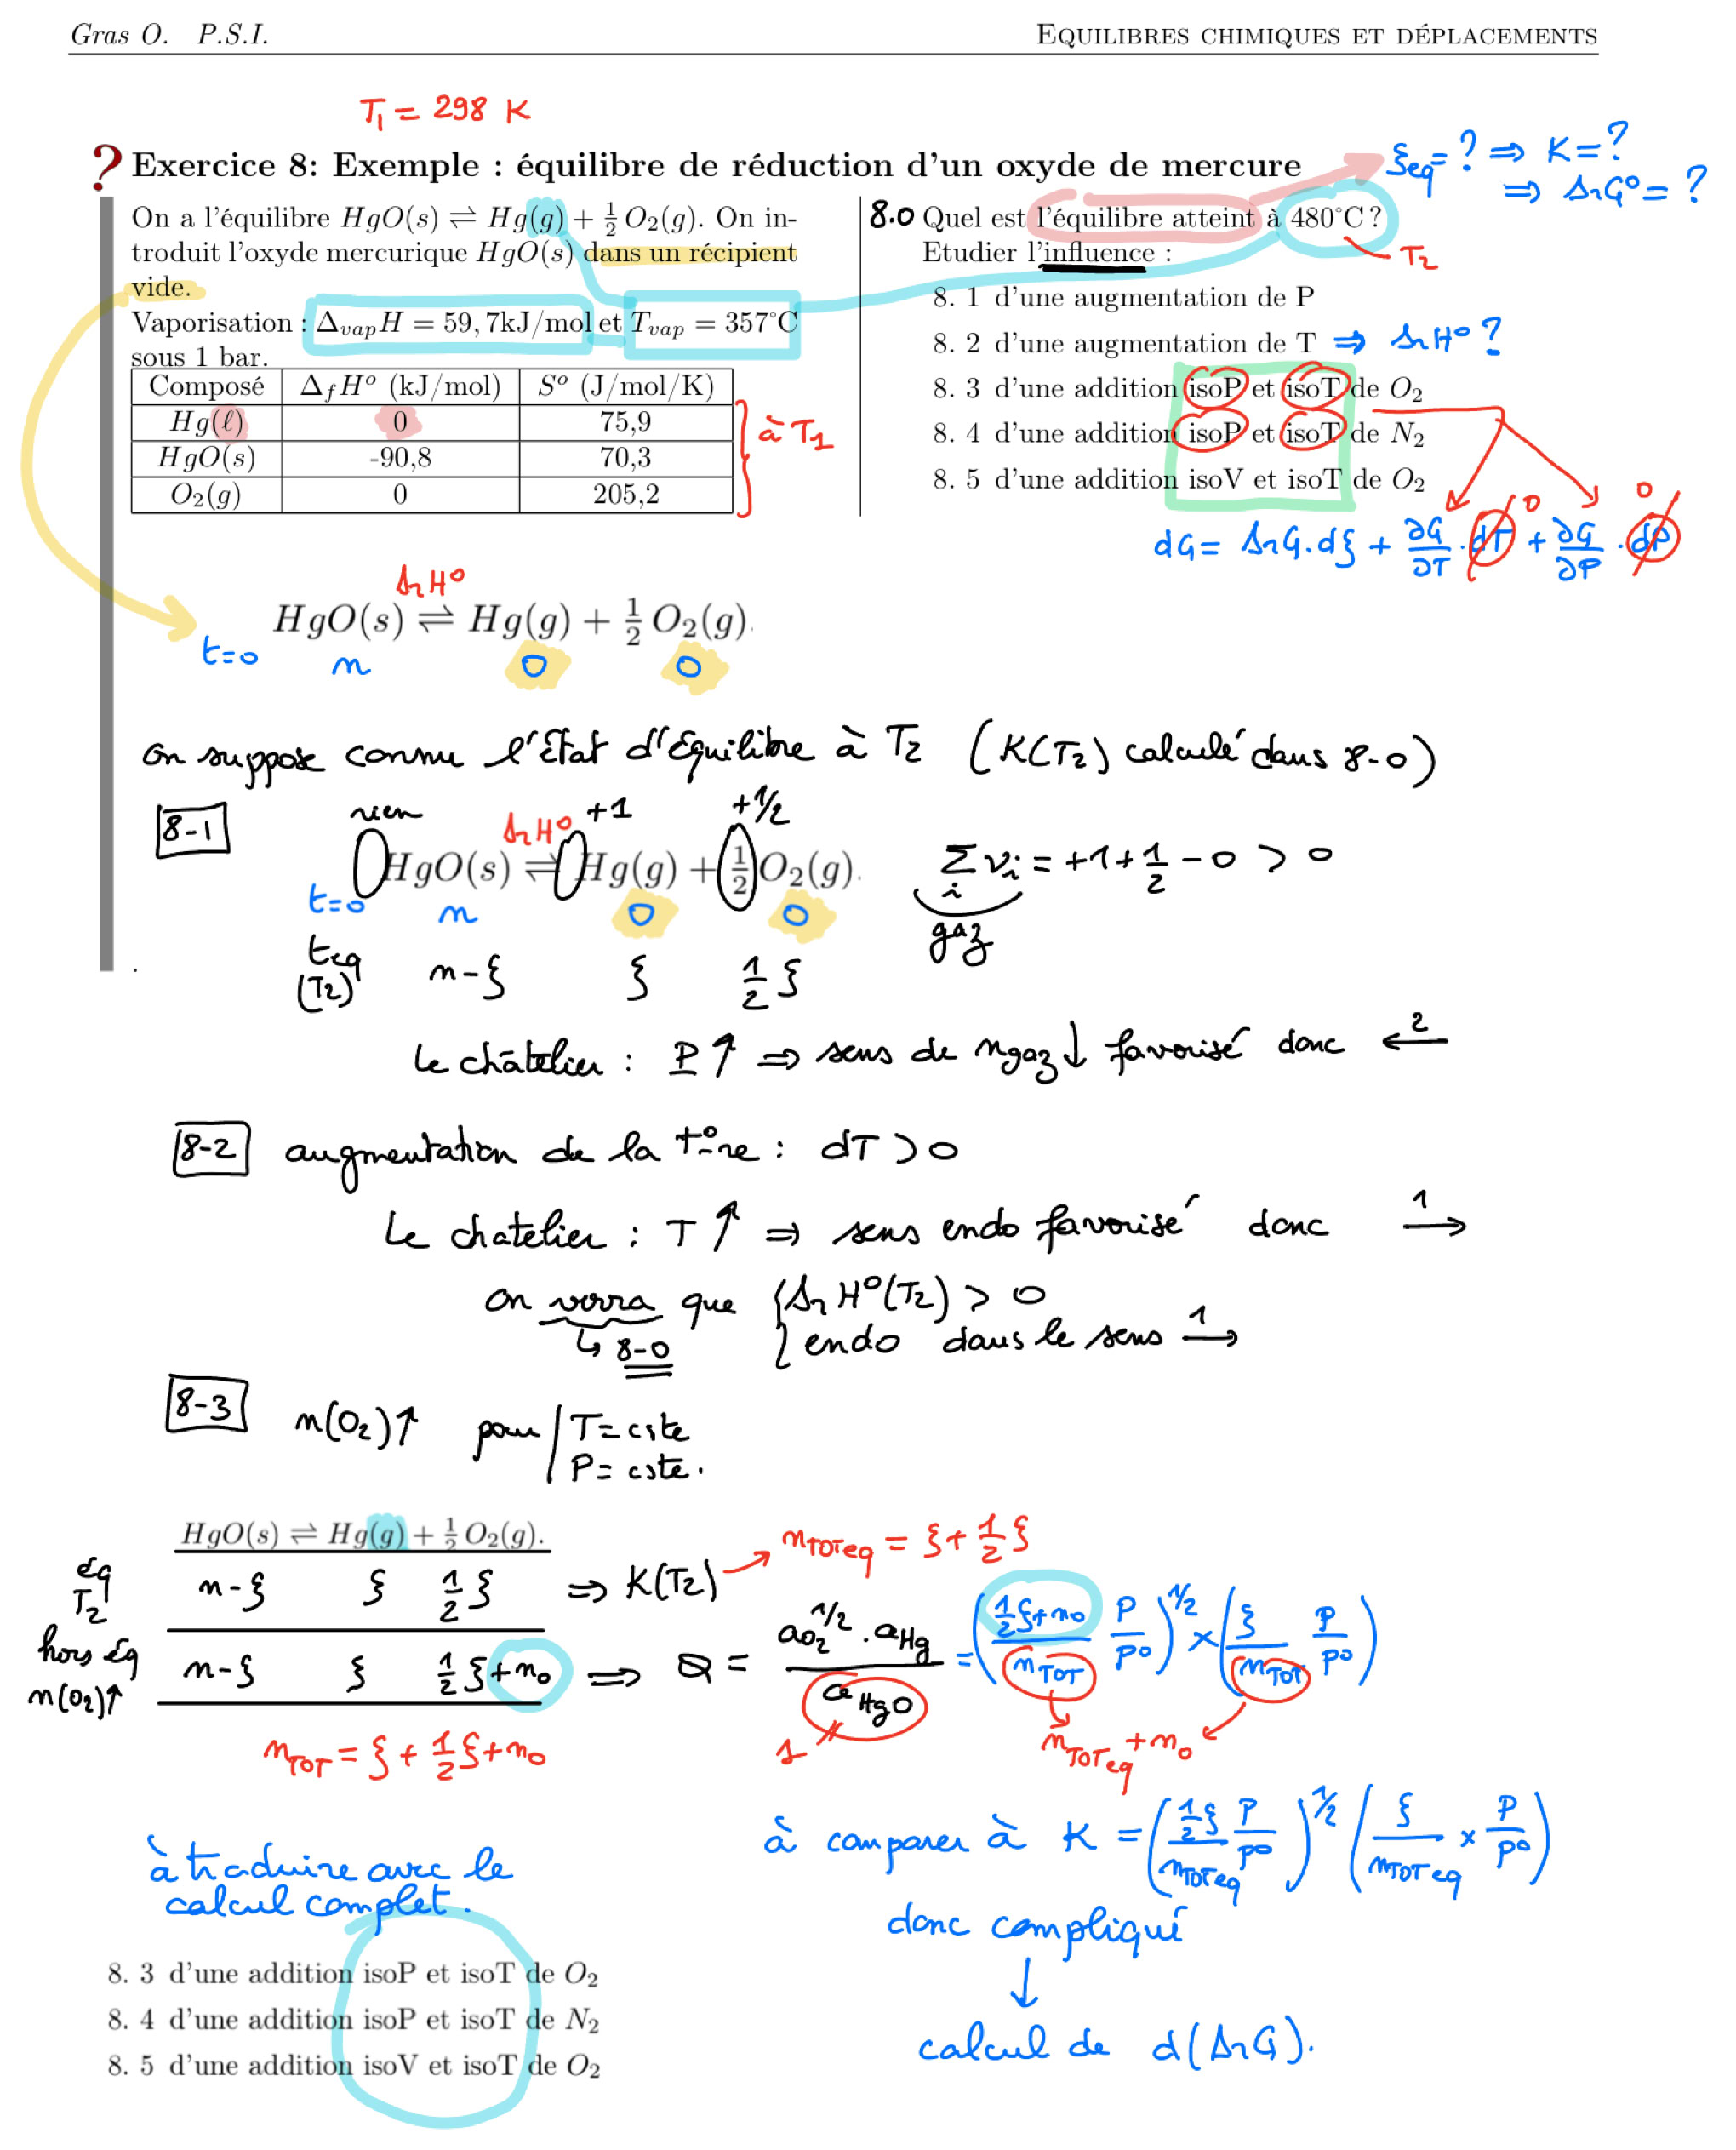 Gras O. P.S.I. EQUILIBRES CHIMIQUES ET DÉPLACEMENTS
T₁ = 298 K
? Exercice 8: Exemple : équilibre de réduction d'un oxyde de mercure
ξeq = ? ⇒ K = ?
⇒ ΔrG° = ?
On a l'équilibre HgO(s) ⇌ Hg(g) + ½ O₂(g). On in-
troduit l'oxyde mercurique HgO(s) dans un récipient
vide.
Vaporisation : ΔvapH = 59,7kJ/mol et Tvap = 357°C
sous 1 bar.
Composé ΔfH° (kJ/mol) S° (J/mol/K)
Hg(ℓ) 0 75,9
HgO(s) -90,8 70,3
O₂(g) 0 205,2
à T₁
8.0 Quel est l'équilibre atteint à 480°C ?
T₂
Etudier l'influence :
8. 1 d'une augmentation de P
8. 2 d'une augmentation de T ⇒ ΔrH° ?
8. 3 d'une addition isoP et isoT de O₂
8. 4 d'une addition isoP et isoT de N₂
8. 5 d'une addition isoV et isoT de O₂
0 0
dG = ΔrG.dξ + ∂G/∂T . dT + ∂G/∂P . dP
ΔrH°
HgO(s) ⇌ Hg(g) + ½ O₂(g).
t=0 n 0 0
On suppose connu l'état d'équilibre à T₂ (K(T₂) calculé dans 8-0)
8-1
rien ΔrH° +1 +1/2
HgO(s) ⇌ Hg(g) + ½ O₂(g).
Σᵢ νᵢ = +1 + ½ - 0 > 0
gaz
t=0 n 0 0
teq (T₂) n-ξ ξ ½ ξ
Le châtelier : P ↑ ⇒ sens de ngaz ↓ favorisé donc ←2
8-2 augmentation de la t°re : dT > 0
Le chatelier : T ↑ ⇒ sens endo favorisé donc 1→
on verra que { ΔrH°(T₂) > 0
↳ 8-0 endo dans le sens 1→
8-3 n(O₂)↑ pour / T = cste
P = cste.
HgO(s) ⇌ Hg(g) + ½ O₂(g).
éq T₂ n-ξ ξ ½ ξ ⇒ K(T₂) → nTOTeq = ξ + ½ ξ
hors éq n(O₂)↑ n-ξ ξ ½ ξ + n₀ ⇒ Q = aO₂^1/2 . aHg / aHgO = ((½ ξ + n₀)/nTOT P/P°)^1/2 × (ξ/nTOT P/P°)
1 nTOTeq + n₀
nTOT = ξ + ½ ξ + n₀
à comparer à K = (½ξ/nTOTeq P/P°)^1/2 (ξ/nTOTeq × P/P°)
à traduire avec le
calcul complet.
donc compliqué
↓
calcul de d(ΔrG).
8. 3 d'une addition isoP et isoT de O₂
8. 4 d'une addition isoP et isoT de N₂
8. 5 d'une addition isoV et isoT de O₂